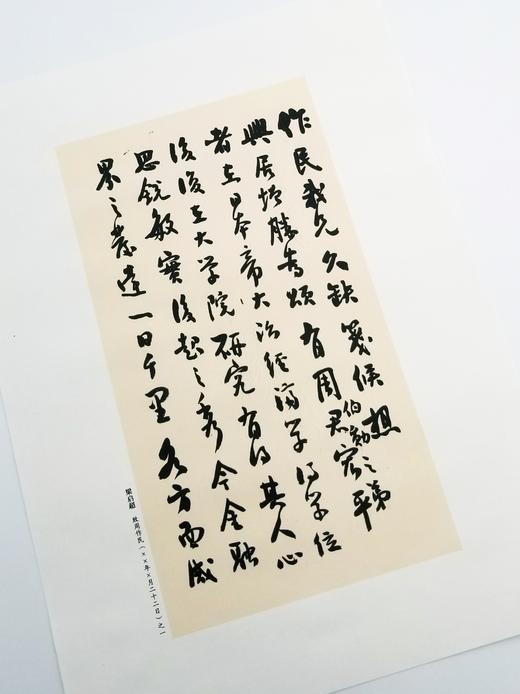 作民我兄久缺箋候想
興居增勝為頌有周君伯勛宏之弟
者在日本帝大治經濟學得學位
後復在大学院研究有得其人心
思銳敏實後起之秀今金融
界之發達一日千里各方面咸
梁启超 致周作民（××年×月二十二日）之一